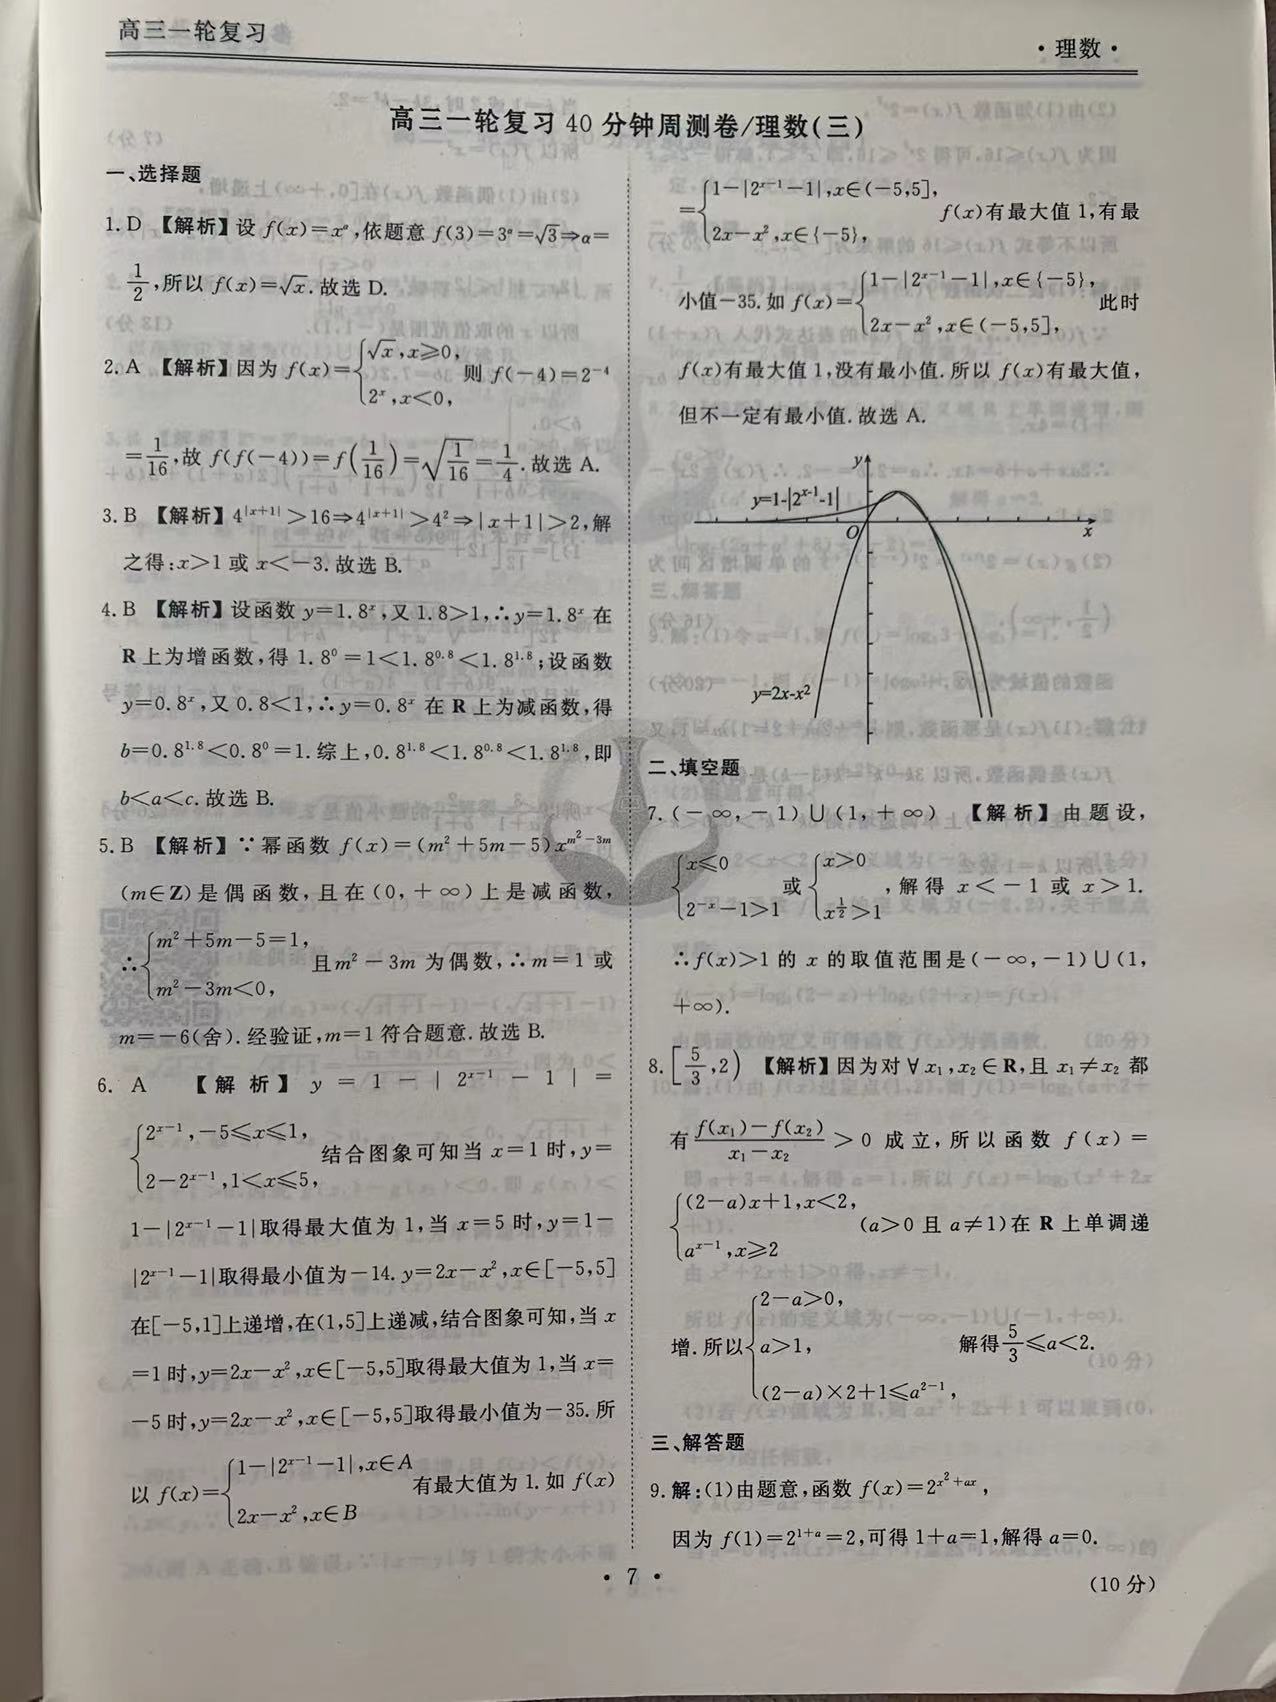 高三一轮复习
·理数·
高三一轮复习 40 分钟周测卷/理数(三)
一、选择题
1. D 【解析】设 f(x)=x^α,依题意 f(3)=3^α=√3⇒α=
1/2,所以 f(x)=√x.故选 D.
2. A 【解析】因为 f(x)={√x,x≥0, 2^x,x<0, 则 f(-4)=2^-4
=1/16,故 f(f(-4))=f(1/16)=√(1/16)=1/4.故选 A.
3. B 【解析】4^|x+1|>16⇒4^|x+1|>4²⇒|x+1|>2,解
之得:x>1 或 x<-3.故选 B.
4. B 【解析】设函数 y=1.8^x,又 1.8>1,∴y=1.8^x 在
R 上为增函数,得 1.8^0=1<1.8^0.8<1.8^1.8;设函数
y=0.8^x,又 0.8<1,∴y=0.8^x 在 R 上为减函数,得
b=0.8^1.8<0.8^0=1.综上,0.8^1.8<1.8^0.8<1.8^1.8,即
b<a<c.故选 B.
5. B 【解析】∵幂函数 f(x)=(m²+5m-5)x^(m²-3m)
(m∈Z)是偶函数,且在(0,+∞)上是减函数,
∴{m²+5m-5=1, m²-3m<0, 且m²-3m 为偶数,∴m=1 或
m=-6(舍).经验证,m=1 符合题意.故选 B.
6. A 【解析】 y=1-|2^(x-1)-1|=
{2^(x-1),-5≤x≤1, 2-2^(x-1),1<x≤5, 结合图象可知当 x=1 时,y=
1-|2^(x-1)-1|取得最大值为 1,当 x=5 时,y=1-
|2^(x-1)-1|取得最小值为-14. y=2x-x²,x∈[-5,5]
在[-5,1]上递增,在(1,5]上递减,结合图象可知,当 x
=1 时,y=2x-x²,x∈[-5,5]取得最大值为 1,当 x=
-5 时,y=2x-x²,x∈[-5,5]取得最小值为-35.所
以 f(x)={1-|2^(x-1)-1|,x∈A 2x-x²,x∈B 有最大值为 1.如 f(x)
={1-|2^(x-1)-1|,x∈(-5,5], 2x-x²,x∈{-5}, f(x)有最大值 1,有最
小值-35.如 f(x)={1-|2^(x-1)-1|,x∈{-5}, 2x-x²,x∈(-5,5], 此时
f(x)有最大值 1,没有最小值.所以 f(x)有最大值,
但不一定有最小值.故选 A.
y
y=1-|2^(x-1)-1|
O
x
y=2x-x²
二、填空题
7. (-∞,-1)∪(1,+∞) 【解析】由题设,
{x≤0 2^(-x)-1>1 或{x>0 x^(1/2)>1 ,解得 x<-1 或 x>1.
∴f(x)>1 的 x 的取值范围是(-∞,-1)∪(1,
+∞).
8. [5/3,2) 【解析】因为对∀x₁,x₂∈R,且 x₁≠x₂ 都
有 (f(x₁)-f(x₂))/(x₁-x₂)>0 成立,所以函数 f(x)=
{(2-a)x+1,x<2, a^(x-1),x≥2 (a>0 且 a≠1)在 R 上单调递
增.所以{2-a>0, a>1, (2-a)×2+1≤a^(2-1), 解得5/3≤a<2.
三、解答题
9. 解:(1)由题意,函数 f(x)=2^(x²+ax),
因为 f(1)=2^(1+a)=2,可得 1+a=1,解得 a=0.
(10 分)
·7·